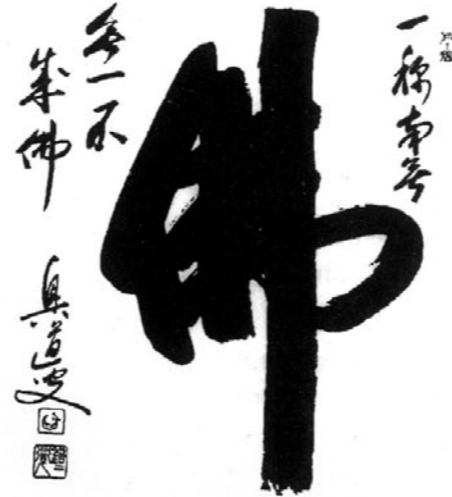 一称南無
佛
無一不
成佛
道叟